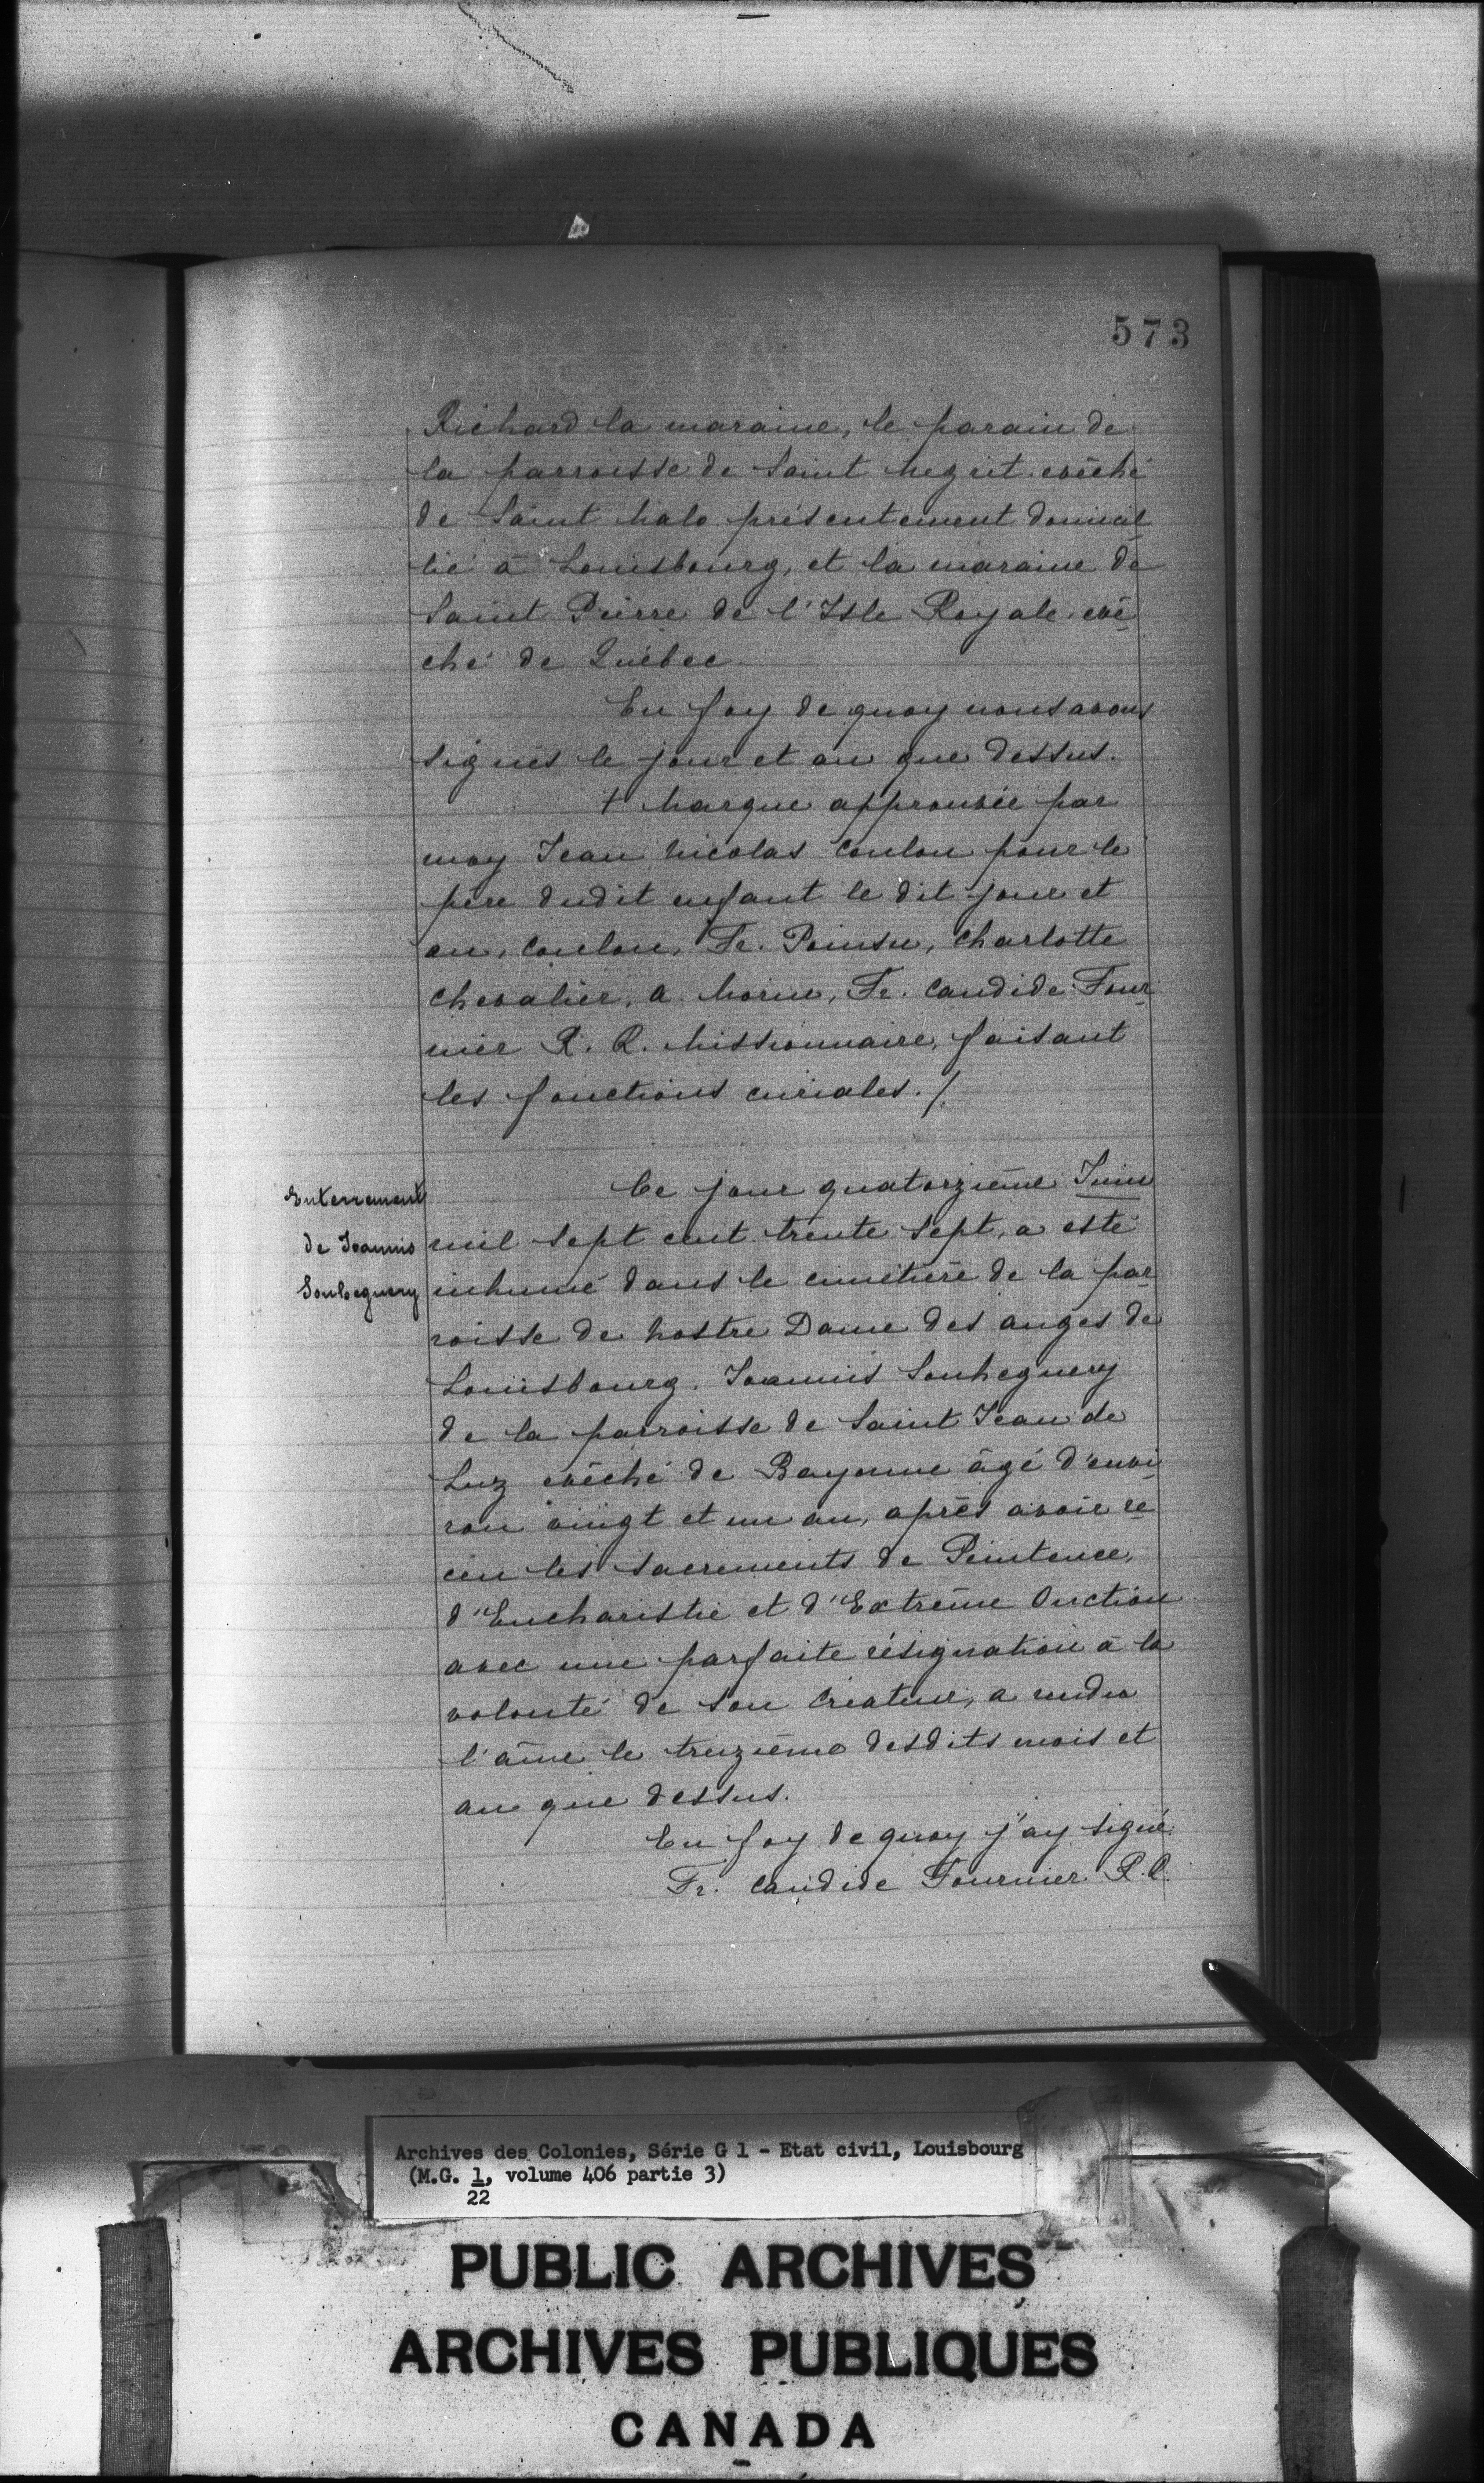 573
Richard la maraine, le parain de
la parroisse de Saint Megrit evêché
de Saint Malo présentement domici
lié à Louisbourg, et la maraine de
Saint Pierre de l'Isle Royale evê
ché de Québec
En foy de quoy nous avons
signés le jour et an que dessus.
+ Marque approuvée par
moy Jean Nicolas Coulon pour le
père dudit enfant le dit jour et
an, Coulon, Fr. Poinsu, Charlotte
Chevalier, a. Morin, Fr. Candide Four
nier R. R. Missionnaire, faisant
les fonctions curiales. /.
Ce jour quatorzième Juin
mil sept cent trente sept, a esté
inhumé dans le cimetière de la par
roisse de Nostre Dame des anges de
Louisbourg. Joannis Souheguery
de la parroisse de Saint Jean de
Luz evêché de Bayonne âgé d'envi
ron vingt et un an, après avoir re
ceu les sacrements de Penitence,
d'Eucharistie et d'Extrême Onction
avec une parfaite résignation à la
volonté de son Createur, a rendu
l'âme le treizième desdits mois et
an que dessus.
En foy de quoy j'ay signé.
Fr. Candide Fournier R. R.
Enterrement
de Joannis
Souheguery
Archives des Colonies, Série G 1 - Etat civil, Louisbourg
(M.G. 1, volume 406 partie 3)
22
PUBLIC ARCHIVES
ARCHIVES PUBLIQUES
CANADA